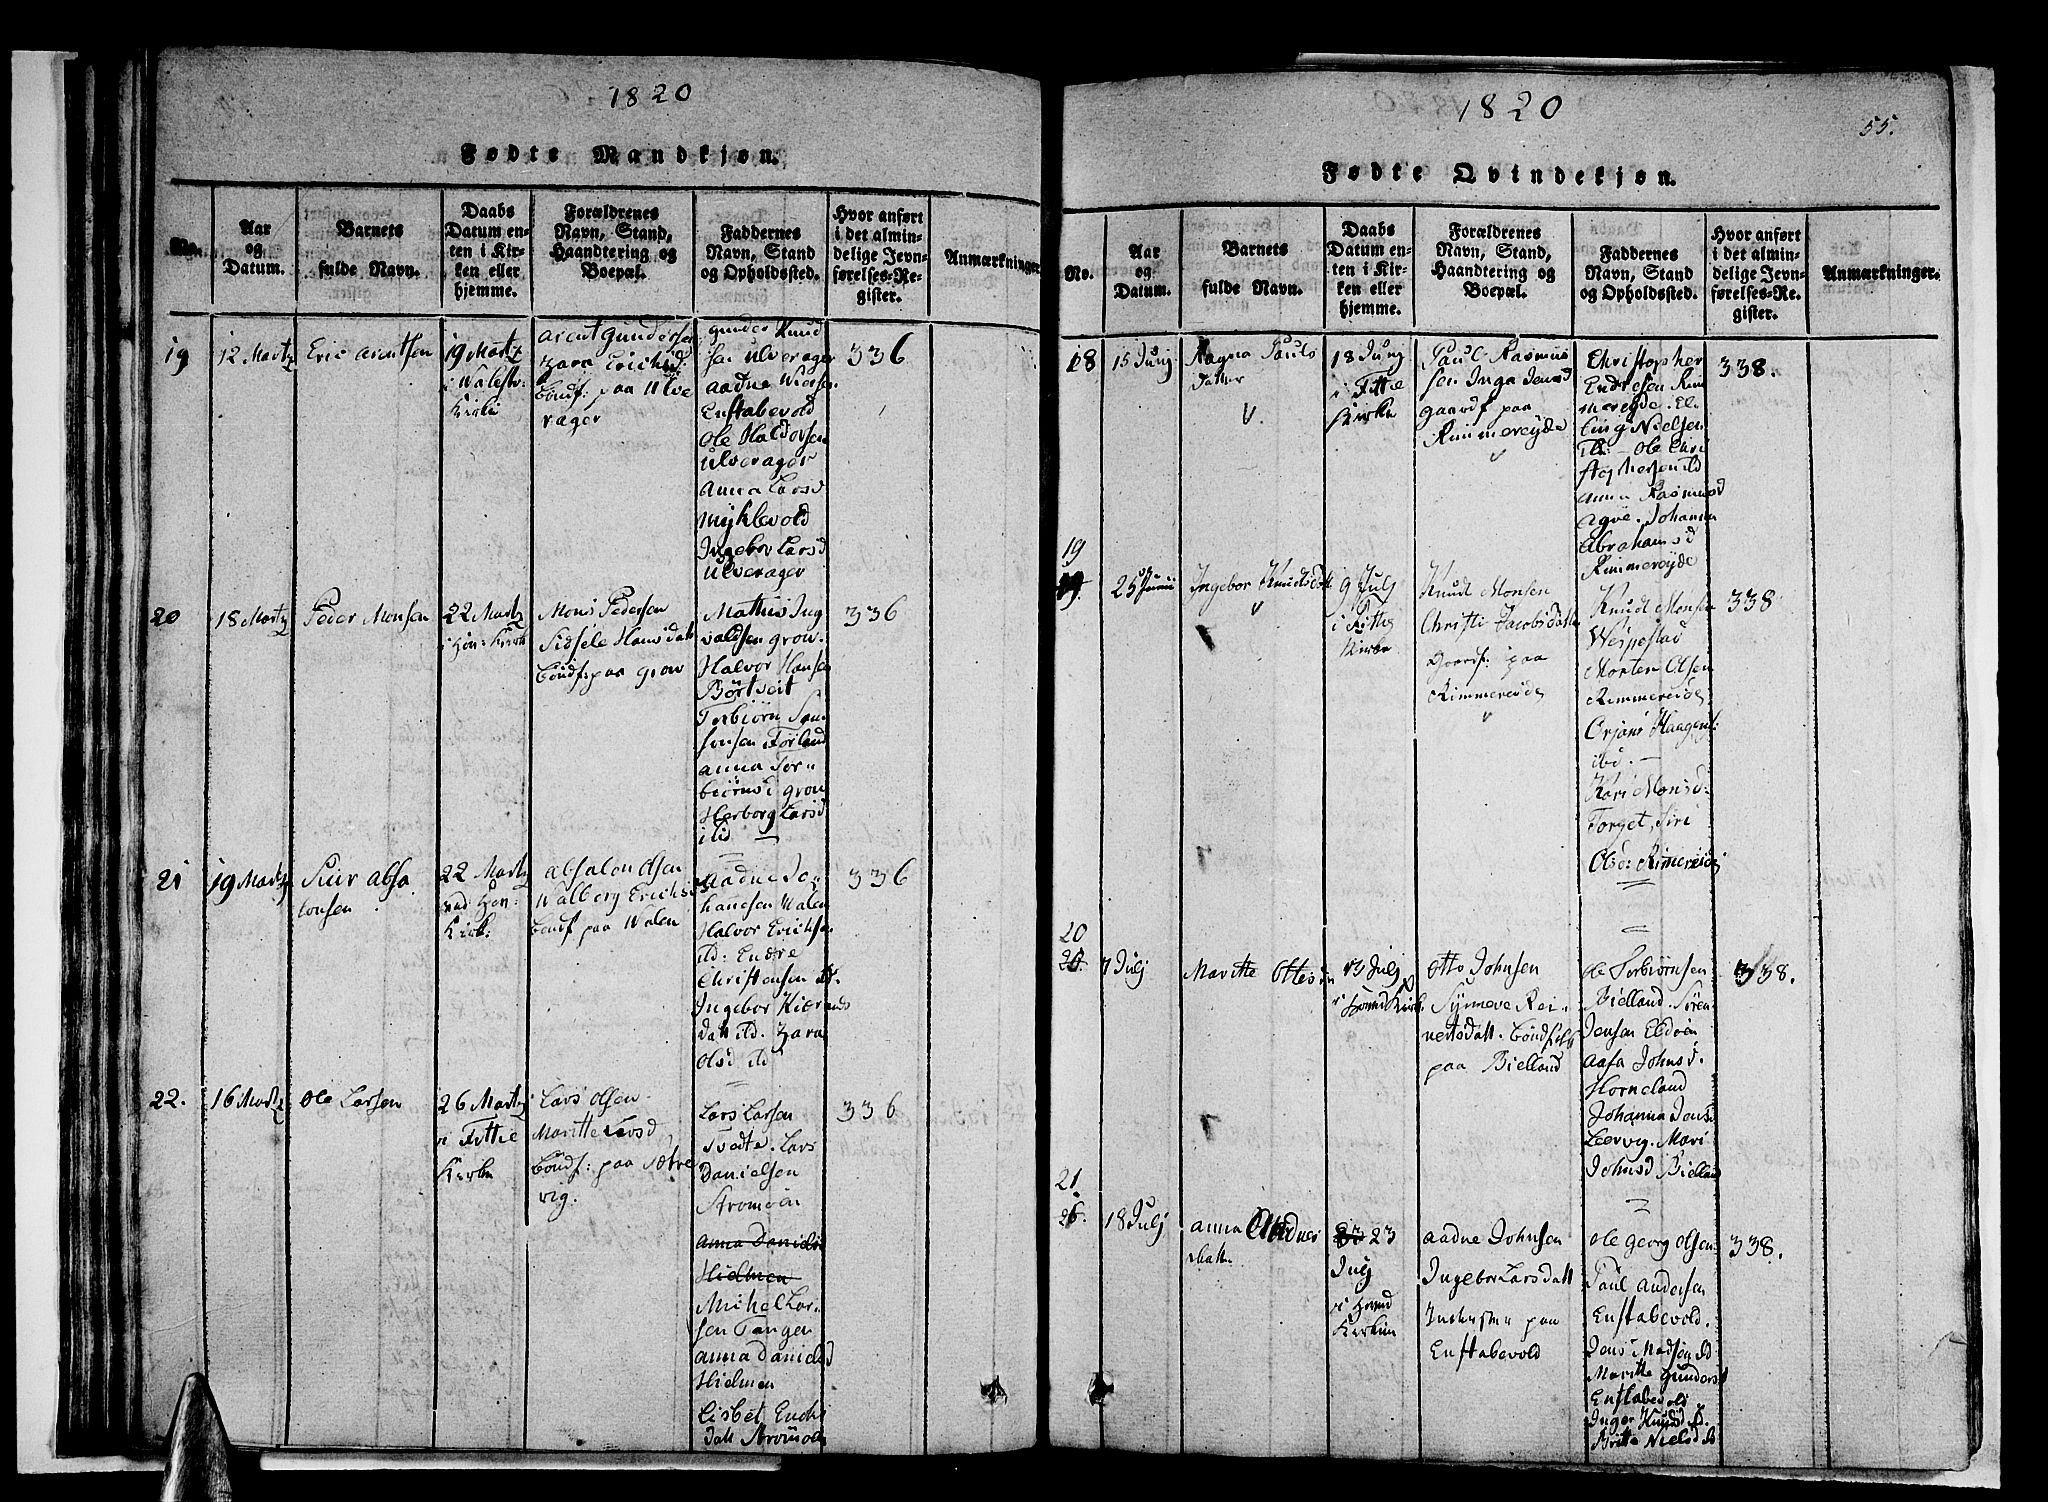 1820
Fødte Mandkjøn.
No.
Aar
og
Datum.
Barnets
fulde Navn.
Daabs
Datum en-
ten i Kir-
ken eller
hjemme.
Forældrenes
Navn, Stand,
Haandtering og
Boepæl.
Faddernes
Navn, Stand
og Opholdssted.
Hvor anført
i det almin-
delige Jevn-
førelses-Re-
gister.
Anmærkninger
19
12 Martz
Eric
19 Martz
i
Kirke
Gunders
paa Ulve
rager
gunder Knud
sen ulverager
aadne
Enstabevold
Ole Haldorsen
ulverager
Anna Larsd
Myklevold
Ingebor Larsd
ulverager
336
20
18 Martz
Peder Monsen
22 Martz
i
Mons Pedersen
Sidsele Hansdatt
bondf: paa grov
Mathis Ing
valdsen grov.
Halvor Hansen
Börtveit
Torbiörn Sam
sonsen Förland
anna Tor-
biörnsd grov
Herborg Larsd
ibid
336
21
19 Martz
Siur absa
lonsen
22 Martz
ved
Kirk:
absalon Olsen
Walberg Ericks
bondf paa Walen
aadne Jo-
hanesen Walen
Halvor Ericksen
ibd: Endre
Christensen ibd.
Ingebor
datt ibd. Zara
Olsd ibd
336
22.
16 Martz
Ole Larsen
26 Martz
i Fittie
Kirke
Lars Olsen
Maritte Larsd
bondf: paa Sætre
vig.
Lars Larsen
Tvedte. Lars
Danielsen
Stromöen
anna Daniels
Hielmen
Michel Lar-
sen Tangen
anna Danielsd
Hielmen
Lisbet
datt Stromöen
336
1820
55.
Fødte Qvindekjøn.
No.
Aar
og
Datum.
Barnets
fulde Navn.
Daabs
Datum en-
ten i Kir-
ken eller
hjemme.
Forældrenes
Navn, Stand,
Haandtering og
Boepæl.
Faddernes
Navn, Stand
og Opholdssted.
Hvor anført
i det almin-
delige Jevn-
førelses-Re-
gister.
Anmærkninger.
18
15 Junj
Magna Pauls
datter
18 Junj
i Fittie
Kirke
Paul Rasmus
sen Inga Jensd
gaardf paa
Rimmereyde
Christopher
Endresen Rim
mereyde. El
ling Nielsen
ib: Ole Chri
stophersen ibd
Anna Rasmusd
Agve. Johanna
Abrahamsd
Rimmereyde
338.
19
19.
25 Junii
Ingebor Knudsdatt
9 Julj
i Fittie
Kirke
Knudt Monsen
Christi Jacobsdatter
paa
Rimmereide
Knudt Monsen
Wespestad
Morten Olsen
Rimmereide
Orjans Haagens:
ibd. —
Kari Monsd:
Torget, Siri
Olsd: Rimereide
338
20
20.
7 Julj
Maritte Ottesd
13 Julj
i
Otto Johnsen
Synneve Rei-
nertsdatt. bondfolk
paa Bielland
Ole Torbiörnsen
Bielland. Sören
Jensen Eldöen
aasa Johnsd.
Horneland
Johanna Jensd
Leervig. Mari
Johnsd Bielland
338.
21.
26.
18 Julj
anna Aadnes
datter
23
Julj
i
Kirken
aadne Johnsen
Ingebor Larsdatt
Inderster paa
Enstabevold
Ole Georg Olsen
Paul Andersen
Enstabevold.
Jens Madsen ibd
Maritte Gundersd
Enstabevold
Inger Knudsd ib.
Britte Nielsd ib
338.